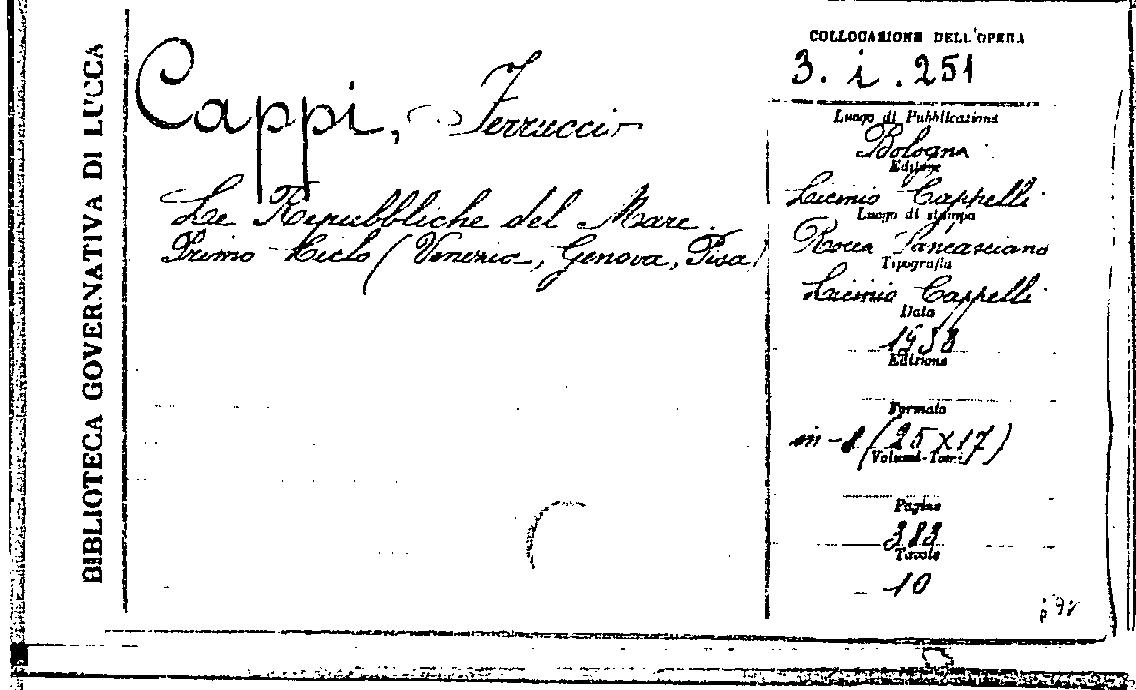 BIBLIOTECA GOVERNATIVA DI LUCCA
Cappi, Ferruccio
Le Repubbliche del Mare.
Primo Ciclo (Venezia, Genova, Pisa)
COLLOCAZIONE DELL'OPERA
3. i. 251
Luogo di Pubblicazione
Bologna
Editore
Licinio Cappelli
Luogo di stampa
Rocca Sancasciano
Tipografia
Licinio Cappelli
Data
1938
Edizione
Formato
in-8 (25x17)
Volumi-Tomi
Pagine
383
Tavole
10